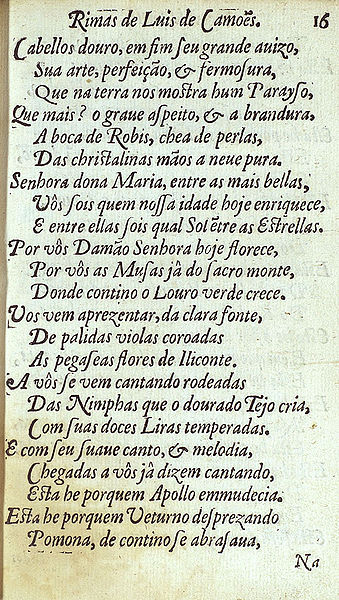 Rimas de Luis de Camoẽs. 16
Cabellos douro, em fim ſeu grande auizo,
Sua arte, perfeição, & fermoſura,
Que na terra nos moſtra hum Parayſo,
Que mais? o graue aſpeito, & a brandura,
A boca de Robis, chea de perlas,
Das chriſtalinas mãos a neue pura.
Senhora dona Maria, entre as mais bellas,
Vôs ſois quem noſſa idade hoje enriquece,
E entre ellas ſois qual Sol ẽtre as Eſtrellas.
Por vôs Damão Senhora hoje florece,
Por vôs as Muſas jâ do ſacro monte,
Donde contino o Louro verde crece.
Vos vem aprezentar, da clara fonte,
De palidas violas coroadas
As pegaſeas flores de Iliconte.
A vôs ſe vem cantando rodeadas
Das Nimphas que o dourado Tejo cria,
Com ſuas doces Liras temperadas.
E com ſeu ſuaue canto, & melodia,
Chegadas a vôs jâ dizem cantando,
Eſta he porquem Apollo emmudecia.
Eſta he porquem Veturno deſprezando
Pomona, de contino ſe abraſaua,
Na